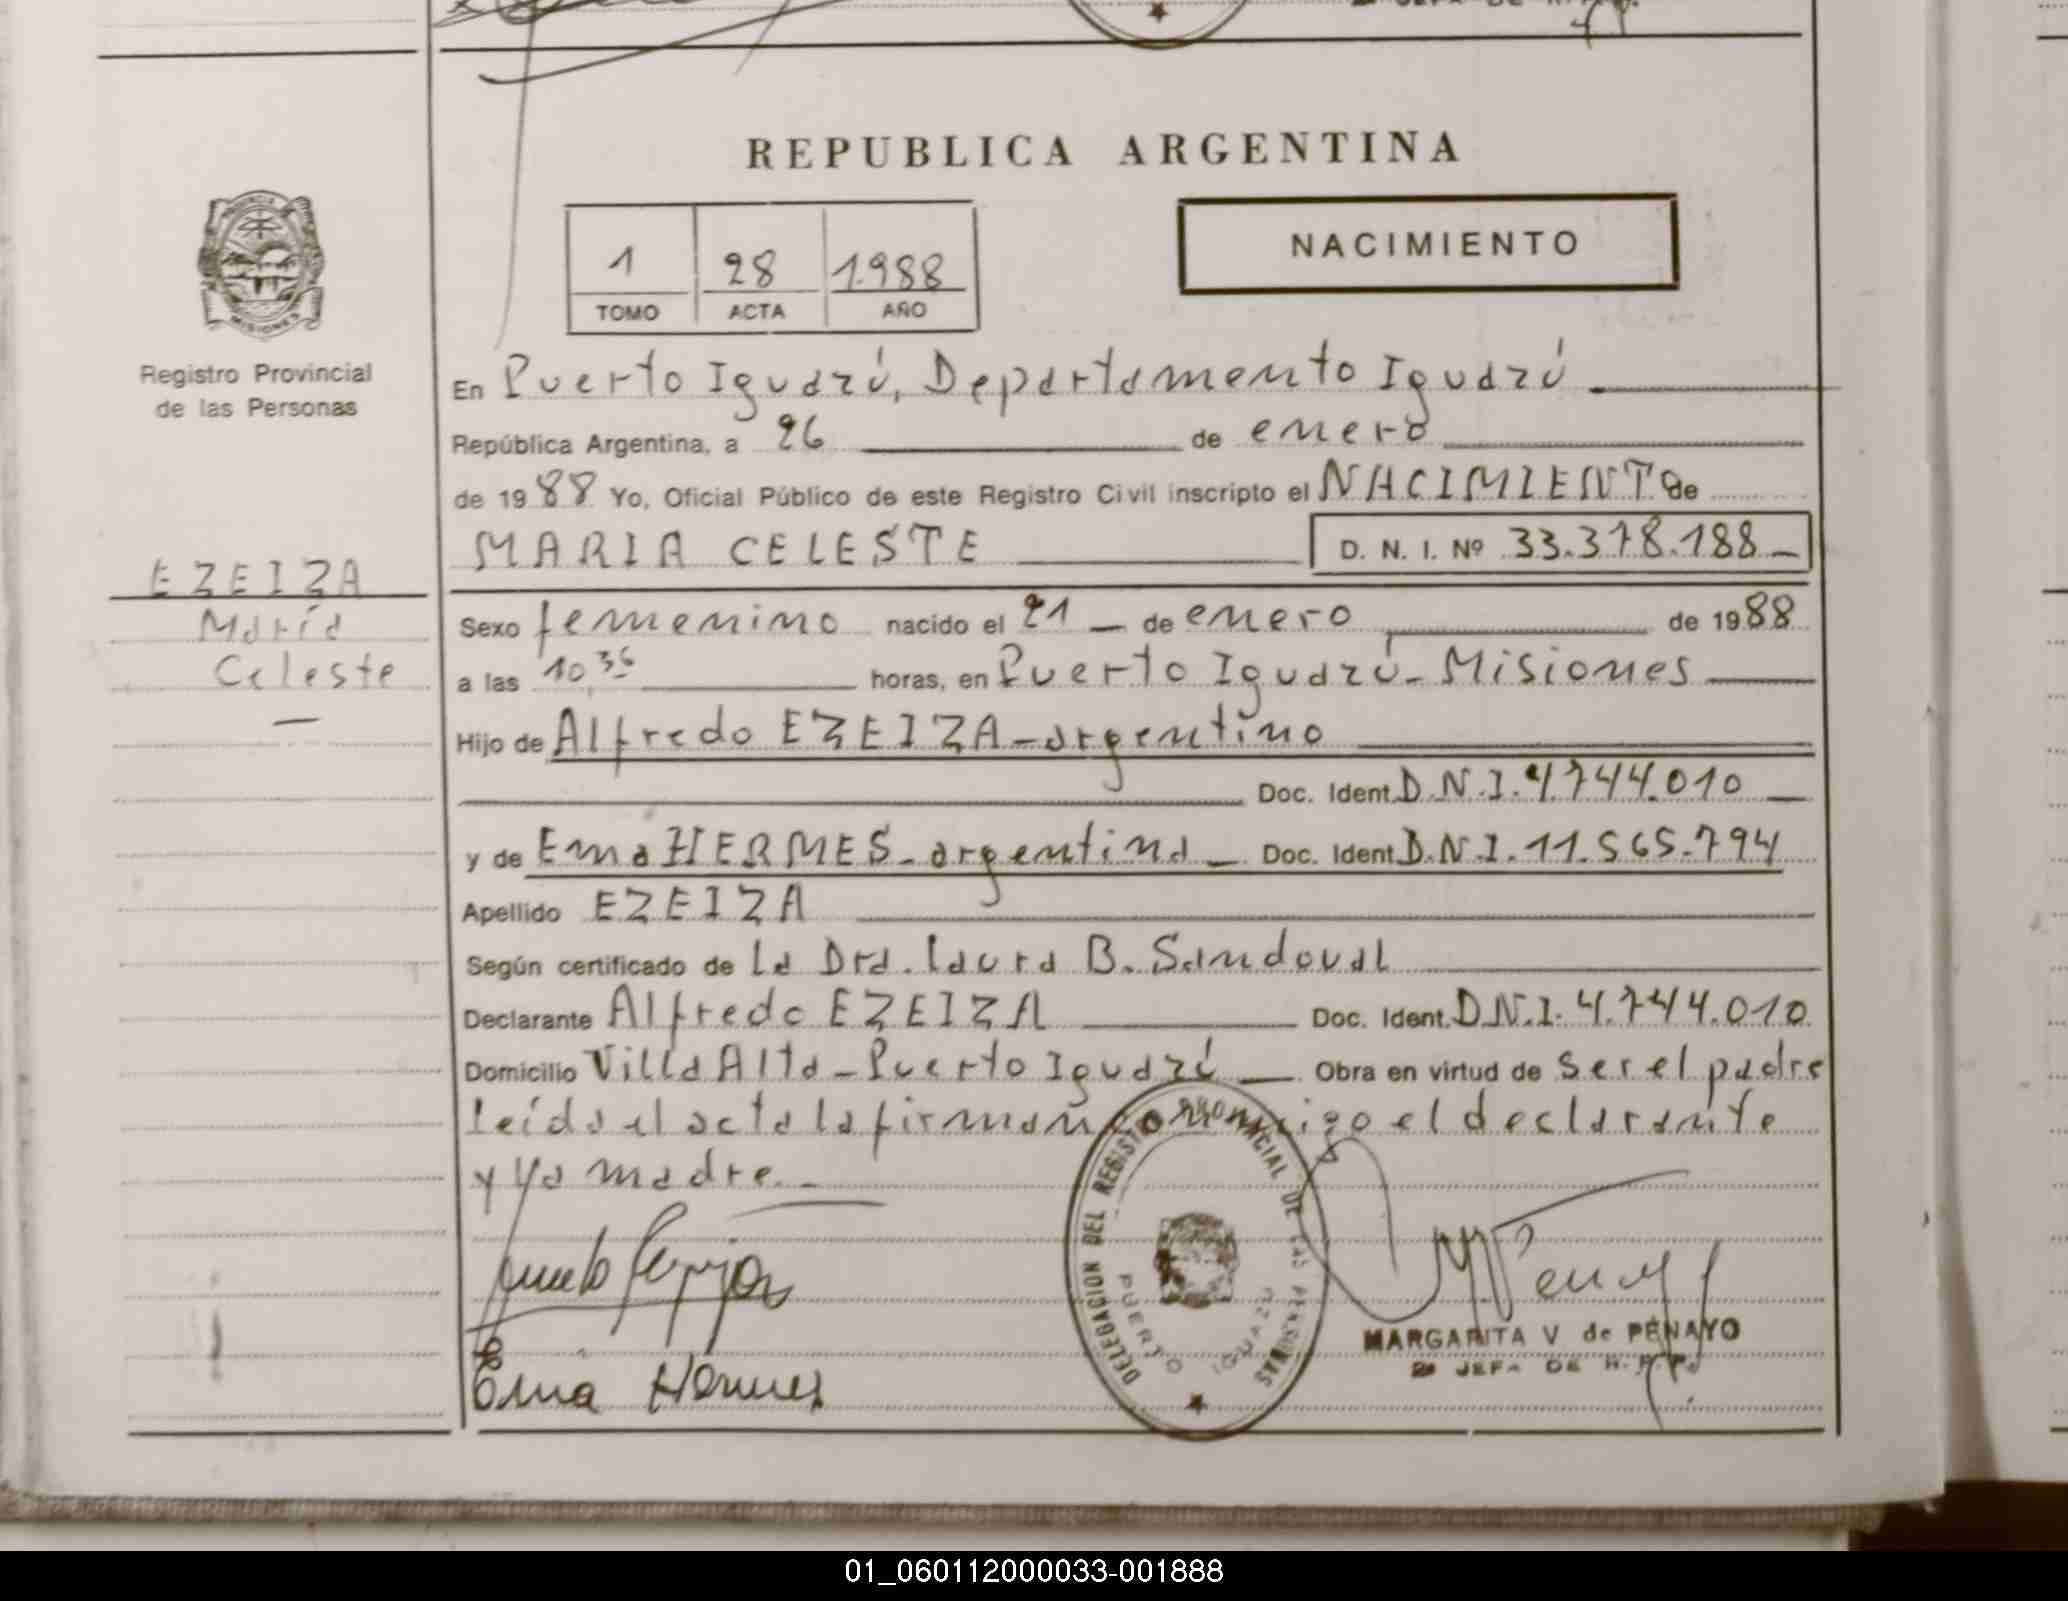 REPUBLICA ARGENTINA
1 28 1.988
TOMO ACTA AÑO
NACIMIENTO
PROVINCIA
MISIONES
Registro Provincial
de las Personas
EZEIZA
María
Celeste
En Puerto Iguazú, Departamento Iguazú
República Argentina, a 26 de enero
de 1988 Yo, Oficial Público de este Registro Civil inscripto el NACIMIENTO de
MARIA CELESTE D. N. I. Nº 33.378.188
Sexo femenino nacido el 21 de enero de 1988
a las 10,36 horas, en Puerto Iguazú - Misiones
Hijo de Alfredo EZEIZA - argentino
Doc. Ident. D.N.I. 4.744.010
y de Ema HERMES - argentina Doc. Ident. D.N.I. 11.565.794
Apellido EZEIZA
Según certificado de La Dra. Laura B. Sandoval
Declarante Alfredo EZEIZA Doc. Ident. D.N.I. 4.744.010
Domicilio Villa Alta - Puerto Iguazú Obra en virtud de ser el padre
leída el acta la firman conmigo el declarante
y la madre.
Ema Hermes
DELEGACION DEL REGISTRO PROVINCIAL DE LAS PERSONAS
PUERTO IGUAZU
MARGARITA V de PENAYO
JEFA DE R.P.P.
01_060112000033-001888